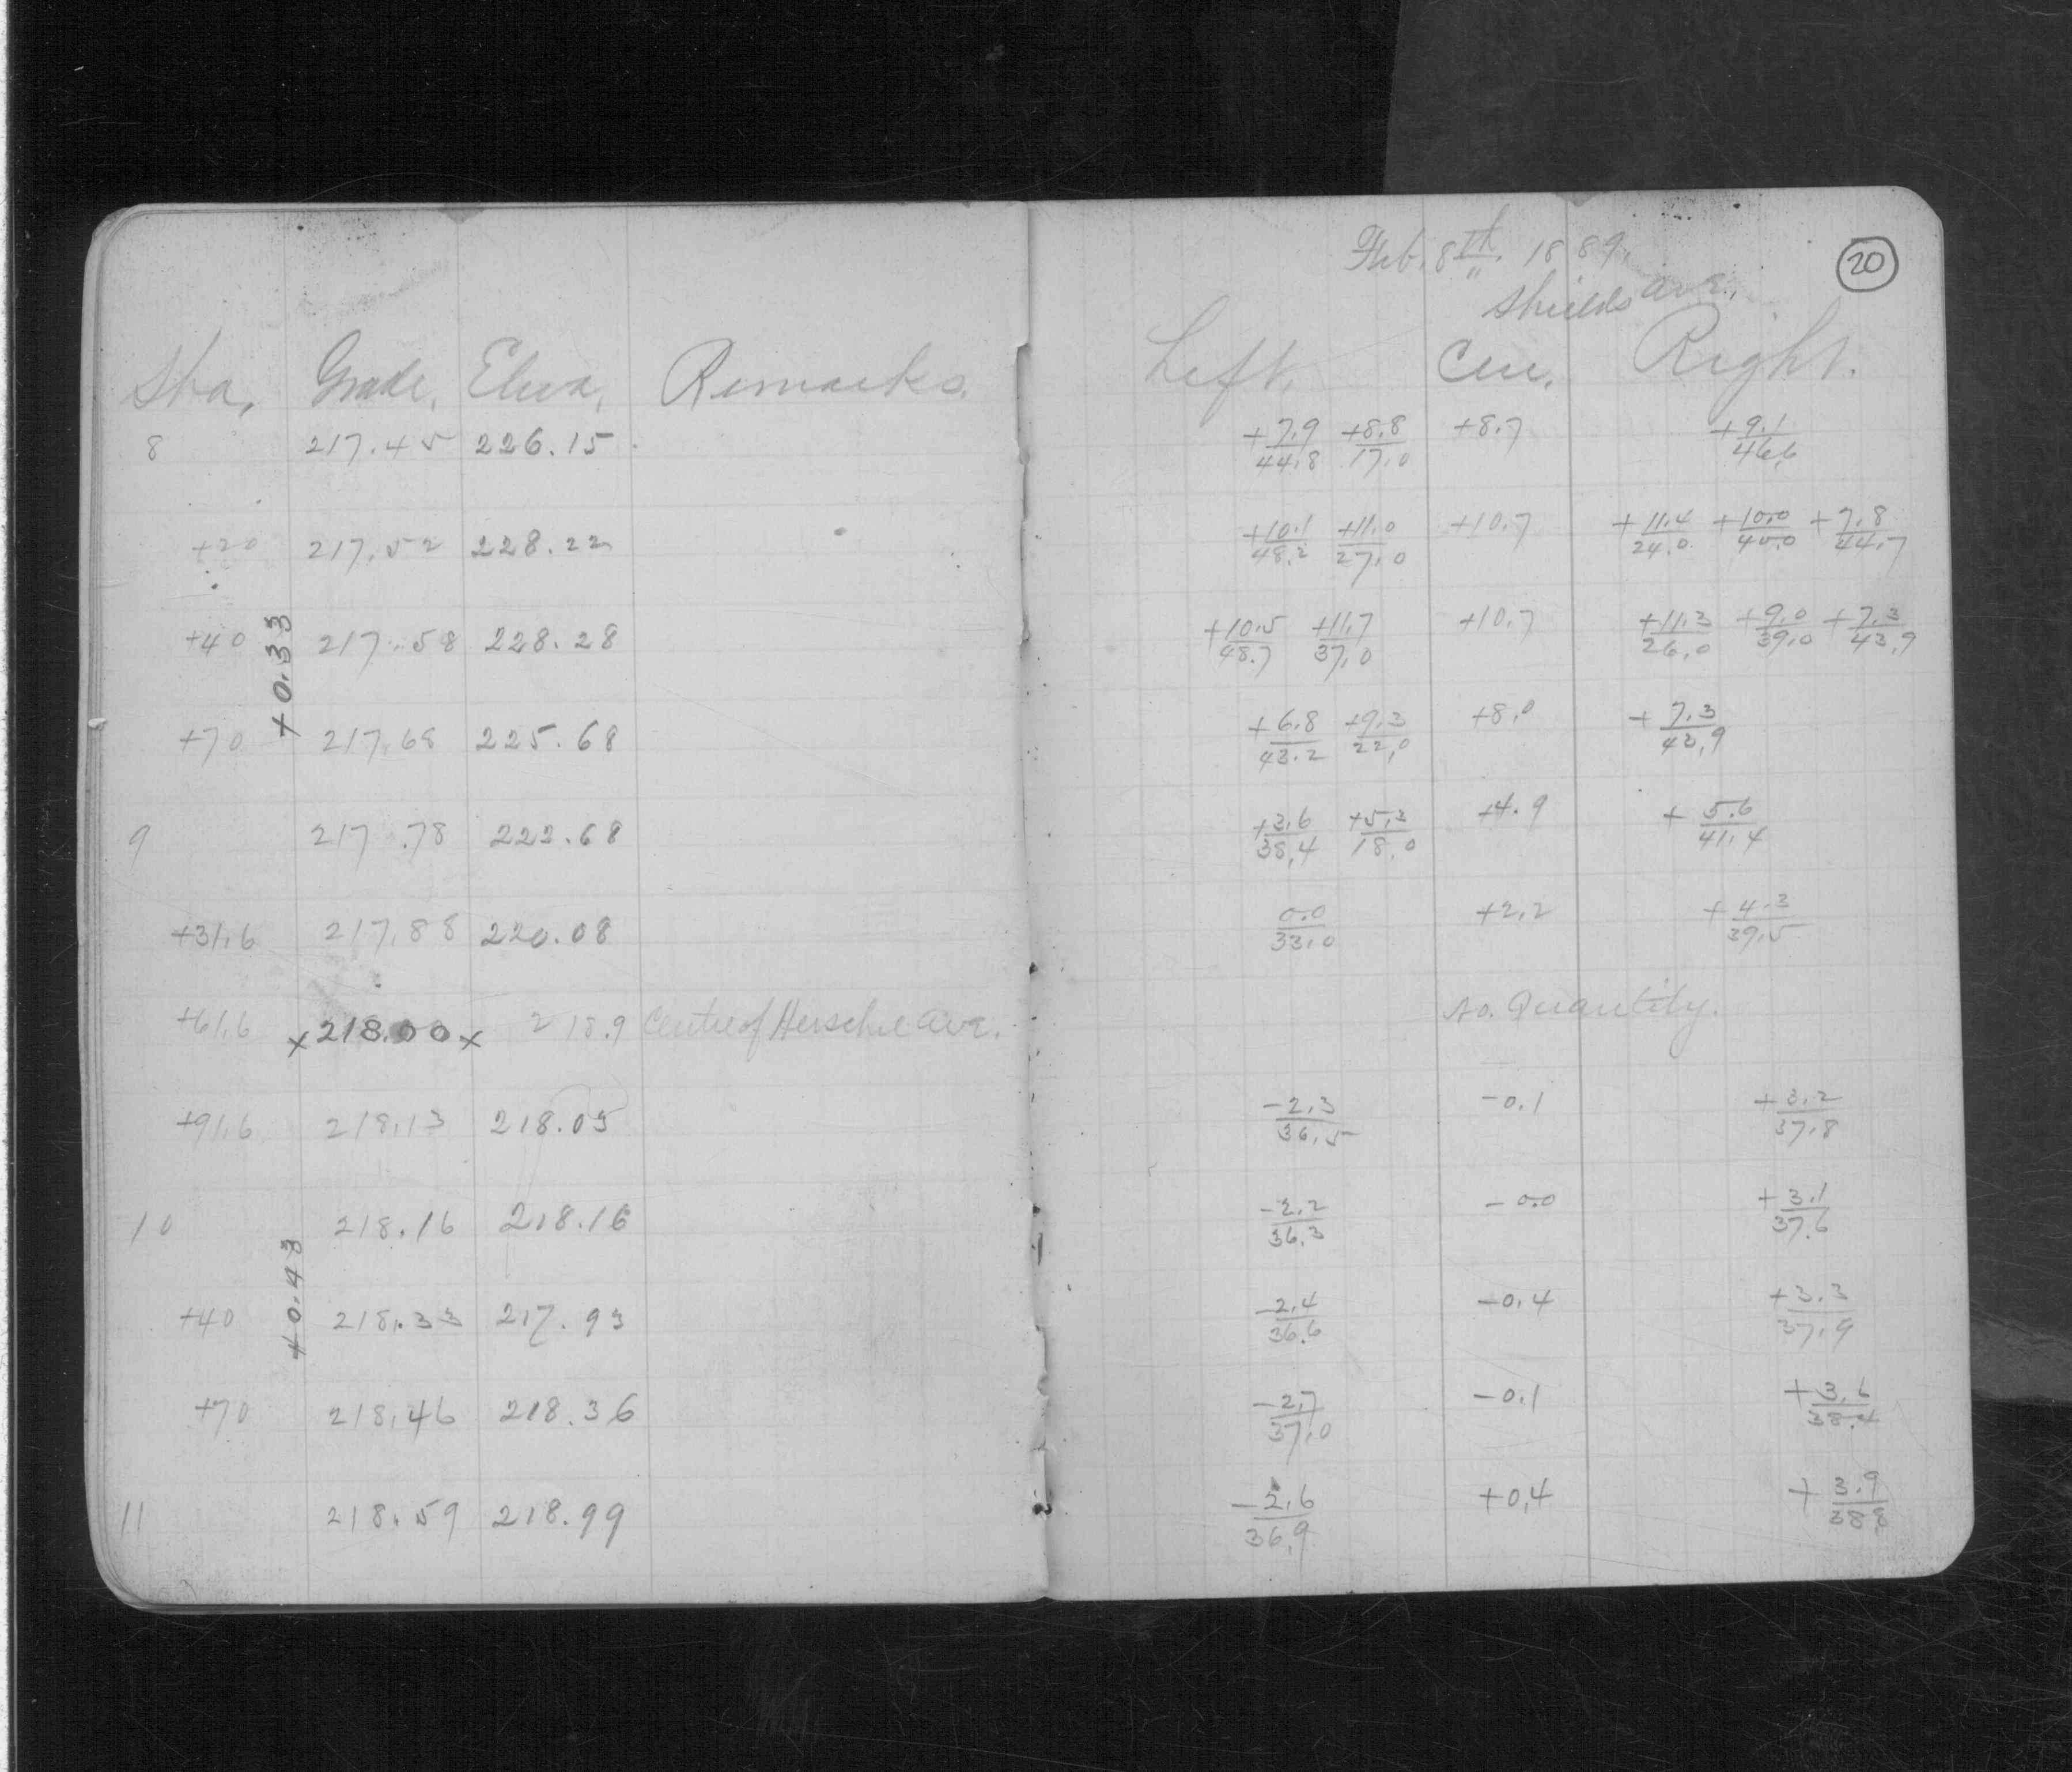 Sta. Grade. Eleva. Remarks.
8 217.45 226.15
+20 217.52 228.22
+40 217.58 228.28
+0.33
+70 217.68 225.68
9 217.78 222.68
+31.6 217.88 220.08
+61.6 x218.00x 218.9 Centre of Herschel Ave.
+91.6 218.13 218.03
10 218.16 218.16
+0.43
+40 218.33 217.93
+70 218.46 218.36
11 218.59 218.99
Feb. 8th. 1889.
20
Shields Ave.
Left. Cen. Right.
+7.9/44.8 +8.8/17.0 +8.7 +9.1/46.6
+10.1/48.2 +11.0/27.0 +10.7 +11.4/24.0 +10.0/40.0 +7.8/44.7
+10.5/48.7 +11.7/37.0 +10.7 +11.3/26.0 +9.0/39.0 +7.3/43.9
+6.8/43.2 +9.3/22.0 +8.0 +7.3/43.9
+3.6/38.4 +5.3/18.0 +4.9 +5.6/41.4
0.0/33.0 +2.2 +4.3/39.5
No. Quantity.
-2.3/36.5 -0.1 +3.2/37.8
-2.2/36.3 -0.0 +3.1/37.6
-2.4/36.6 -0.4 +3.3/37.9
-2.7/37.0 -0.1 +3.6/38.4
-2.6/36.9 +0.4 +3.9/38.8